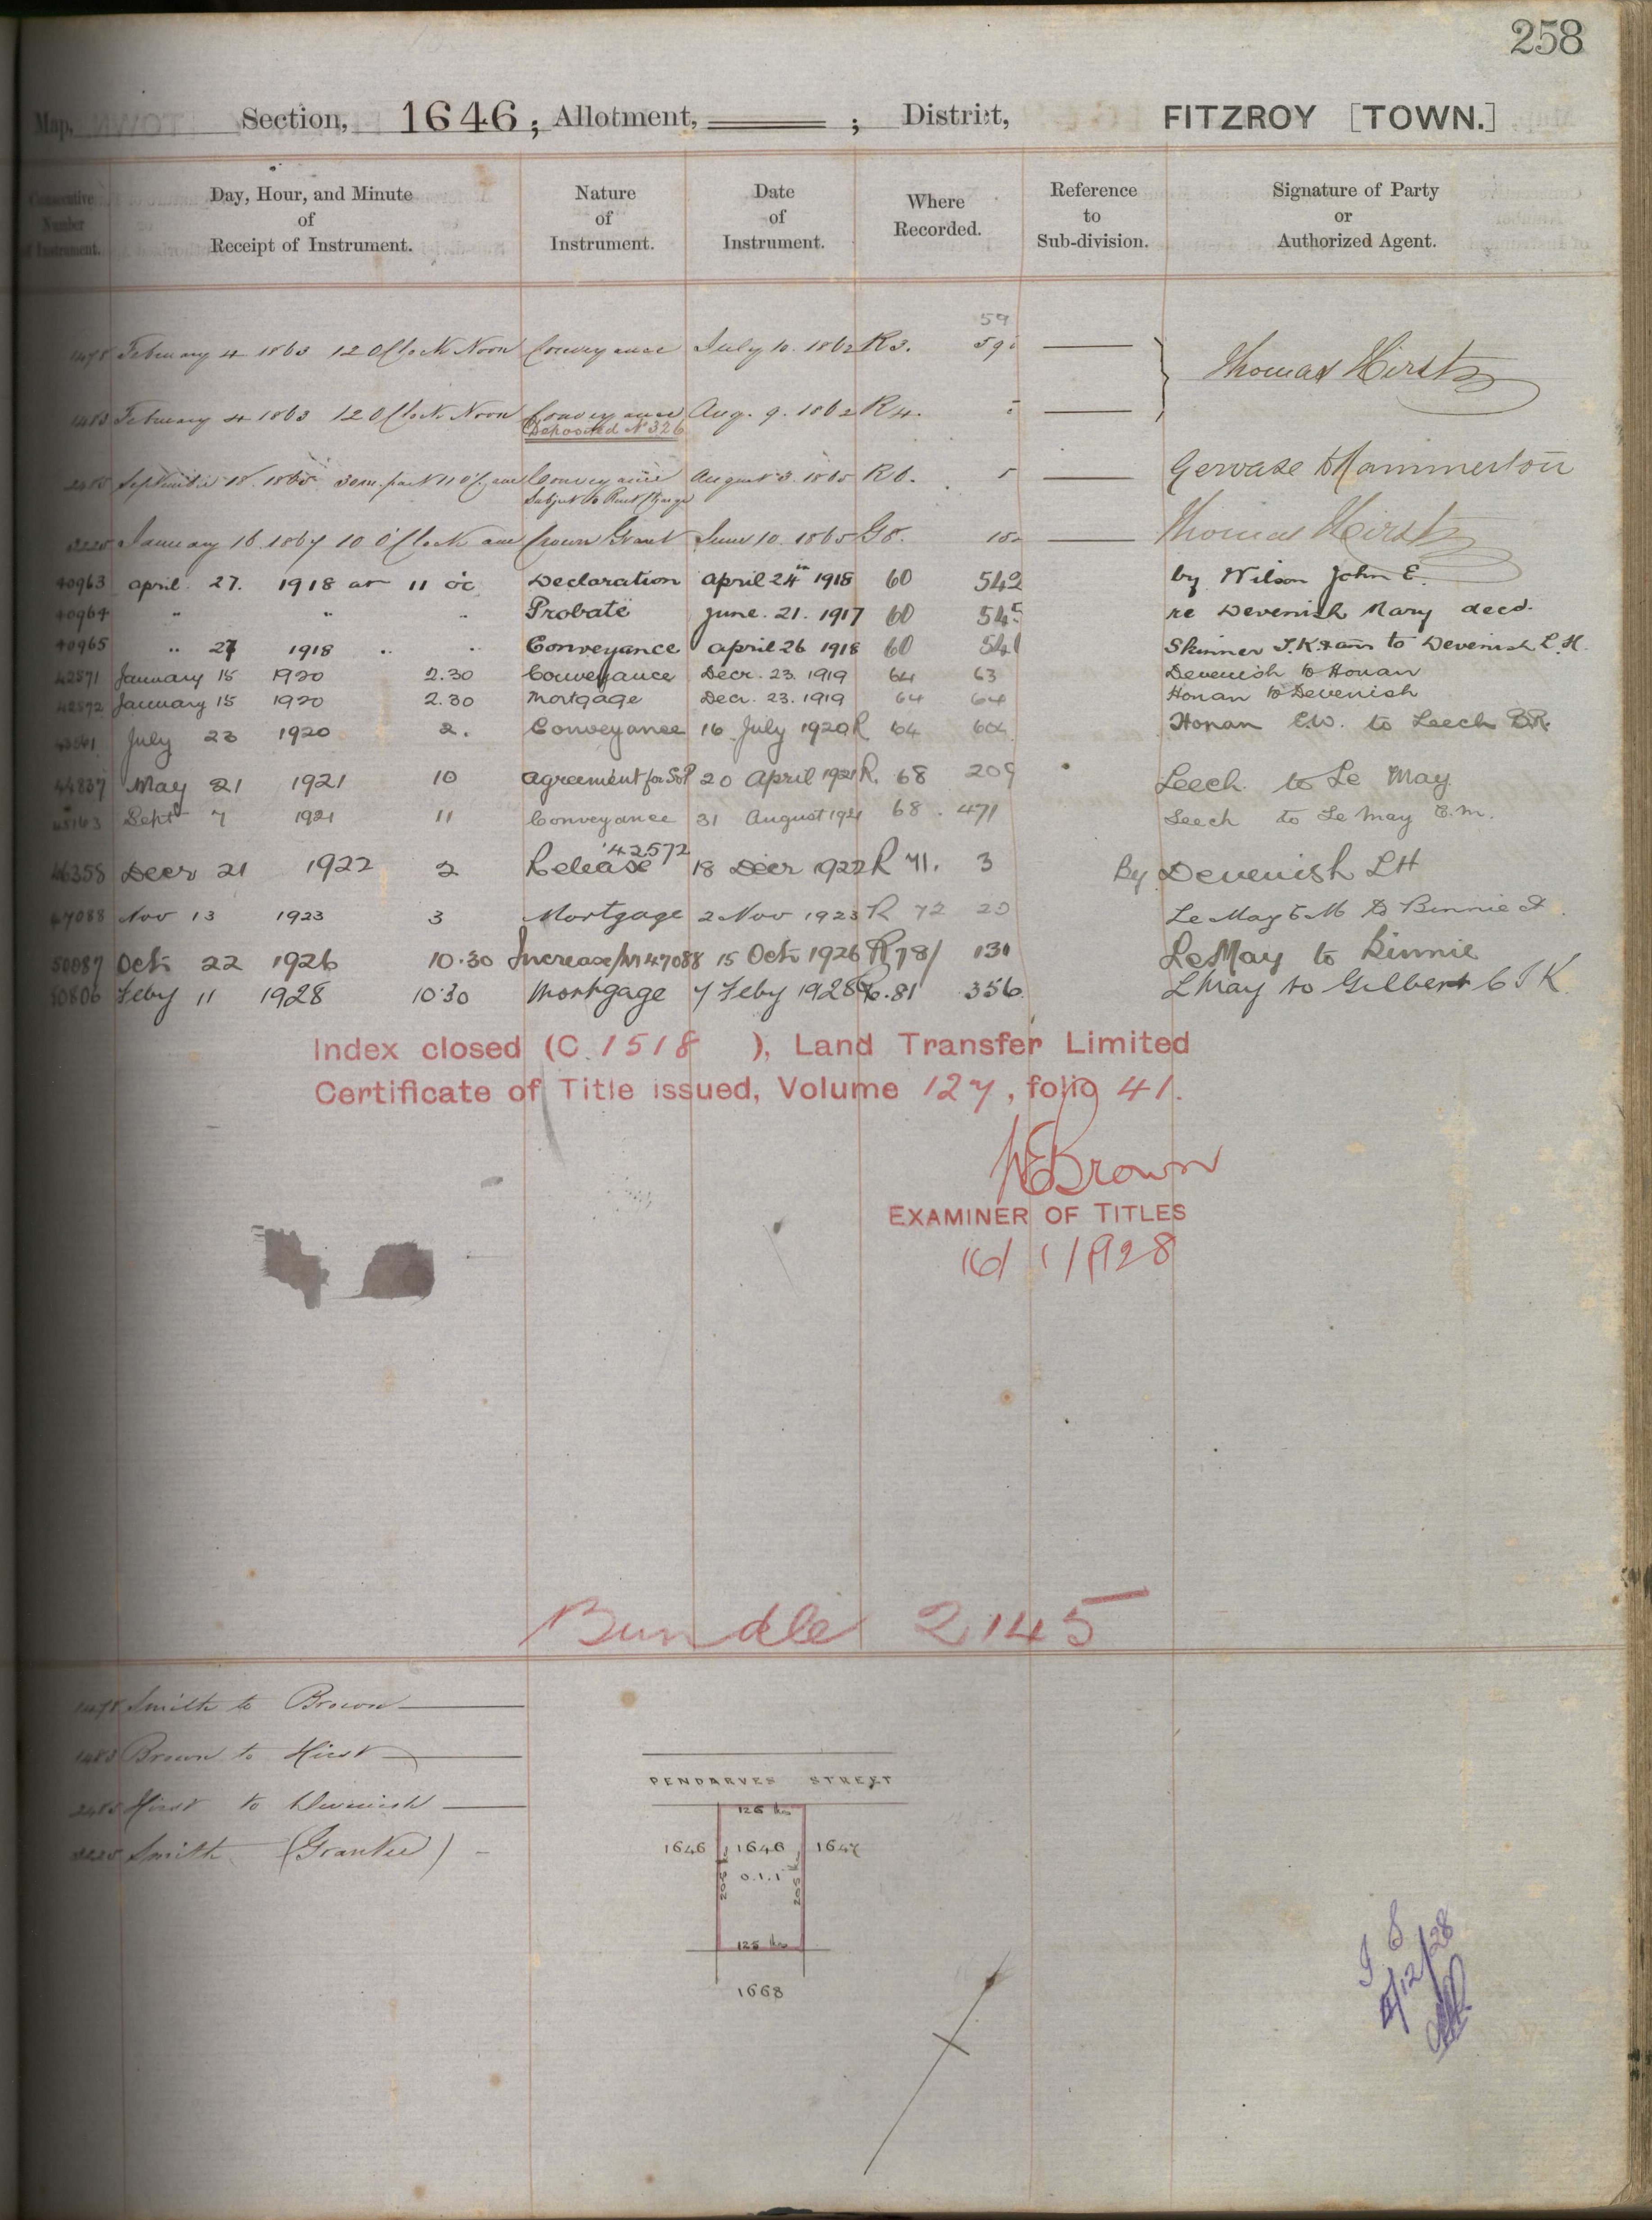 258
Map, Section, 1646; Allotment, ; District, FITZROY [TOWN.]
Consecutive Number of Instrument. Day, Hour, and Minute of Receipt of Instrument. Nature of Instrument. Date of Instrument. Where Recorded. Reference to Sub-division. Signature of Party or Authorized Agent.
59
1478 February 4 1863 12 O'Clock Noon Conveyance July 10. 1862 R3. 59 Thomas Hirst
1483 February 4 1863 12 O'Clock Noon Conveyance Aug. 9. 1862 R4.
Deposited No 326
2485 September 18. 1865 30 m. past 11 Conveyance August 3. 1865 R6. 5 Gervase Hammerton
Subject to Rent Charge
3225 January 16. 1867 10 O'Clock am Crown Grant June 10. 1865 G8. Thomas Hirst
40963 April 27. 1918 at 11 oc Declaration April 24th 1918 60 542 by Wilson John E.
40964 " " " Probate June. 21. 1917 60 545 re Devenish Mary decd.
40965 " 27 1918 " " Conveyance April 26 1918 60 541 Skinner T.K. & anr to Devenish L.H.
42571 January 15 1920 2.30 Conveyance Decr. 23. 1919 64 63 Devenish to Honan
42572 January 15 1920 2.30 Mortgage Decr. 23. 1919 64 64 Honan to Devenish
July 23 1920 2. Conveyance 16 July 1920 R 64 604 Honan E.W. to Leech B.R.
44837 May 21 1921 10 Agreement for S&P 20 April 1921 R. 68 209 Leech to Le May
45163 Sept 7 1921 11 Conveyance 31 August 1921 68. 471 Leech to Le May E.M.
46358 Decr 21 1922 2 Release 42572 18 Decr 1922 R 71. 3 By Devenish LH
47088 Nov 13 1923 3 Mortgage 2 Nov 1923 R 72 20 Le May E M to Binnie
50087 Oct 22 1926 10.30 Increase/M 47088 15 Oct 1926 R 78/ 131 LeMay to Binnie
50806 Feby 11 1928 10.30 Mortgage 7 Feby 1928 R.81 356 L May to Gilbert
Index closed (C. 1518 ), Land Transfer Limited
Certificate of Title issued, Volume 127, folio 41.
Brown
EXAMINER OF TITLES
16/ 1 /1928
Bundle 2145
1478 Smith to Brown
1483 Brown to Hirst
2485 Hirst to Devenish
3225 Smith (Grantee)
PENDARVES STREET
125 lks
1646 1646 1647
0.1.1
205 205
125 lks
1668
12/28